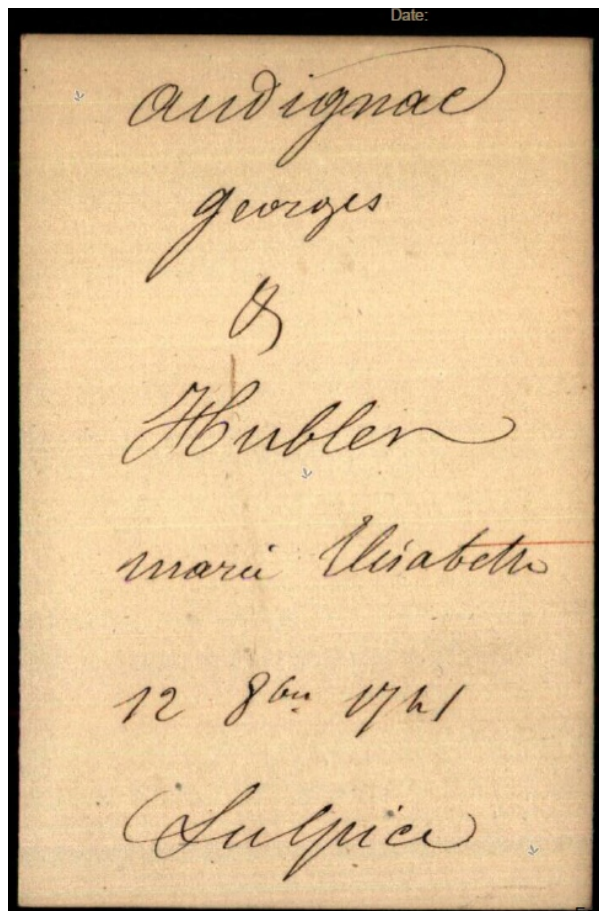 Date:
Audignac
Georges
&
Hubler
marie Elisabeth
12 8bre 1741
Sulpice